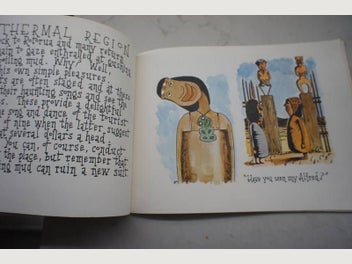 THERMAL REGION
ck to Rotorua and many return
ain to gaze enthralled at
oiling mud. Why? Well
his own simple pleasures.
s are often staged and at these
their haunting songs and see the
s. These provide a delightful
song and dance of the tourist
nine when the latter suggest
at several dollars a head.
You can, of course, conduct
the place, but remember that
ing mud can ruin a new suit.
"Have you seen my Alfred?"